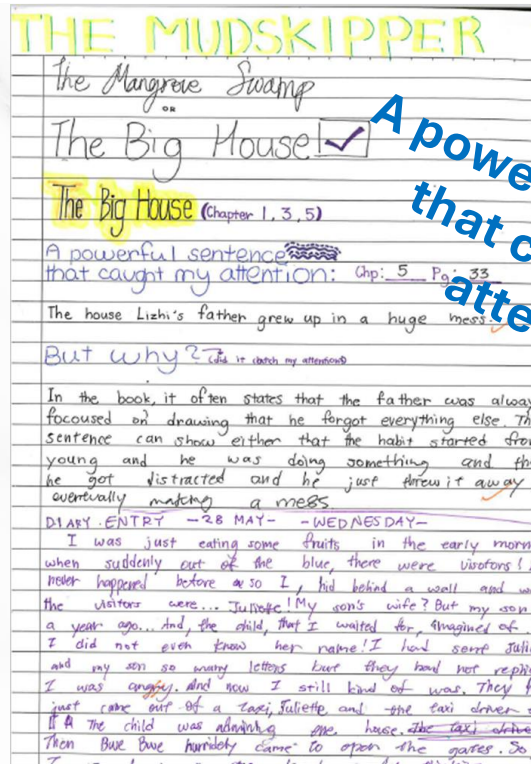 THE MUDSKIPPER
The Mangrove Swamp
OR
The Big House
The Big House (Chapter 1, 3, 5)
A powerful sentence
that caught my attention: Chp: 5 Pg: 33
The house Lizhi's father grew up in a huge mess.
But why? (did it catch my attention)
In the book, it often states that the father was alway
focoused on drawing that he forgot everything else. Th
sentence can show either that the habit started from
young and he was doing something and th
he got distracted and he just threw it away
eventually making a mess
DIARY ENTRY - 28 MAY - - WEDNESDAY -
I was just eating some fruits in the early morn
when suddenly out of the blue, there were visotors!
never happened before so I, hid behind a wall and w
the visitors were... Juliette! My son's wife? But my son
a year ago... And, the child, that I waited for, imagined of
I did not even know her name! I had some Juli
and my son so many letters but they had not repli
I was angry. And now I still kind of was. They
just came out of a taxi, Juliette, and the taxi driver
The child was admiring the house. The taxi driver
Then Bwe Bwe hurridely came to open the gates. So
A powe
that c
atte